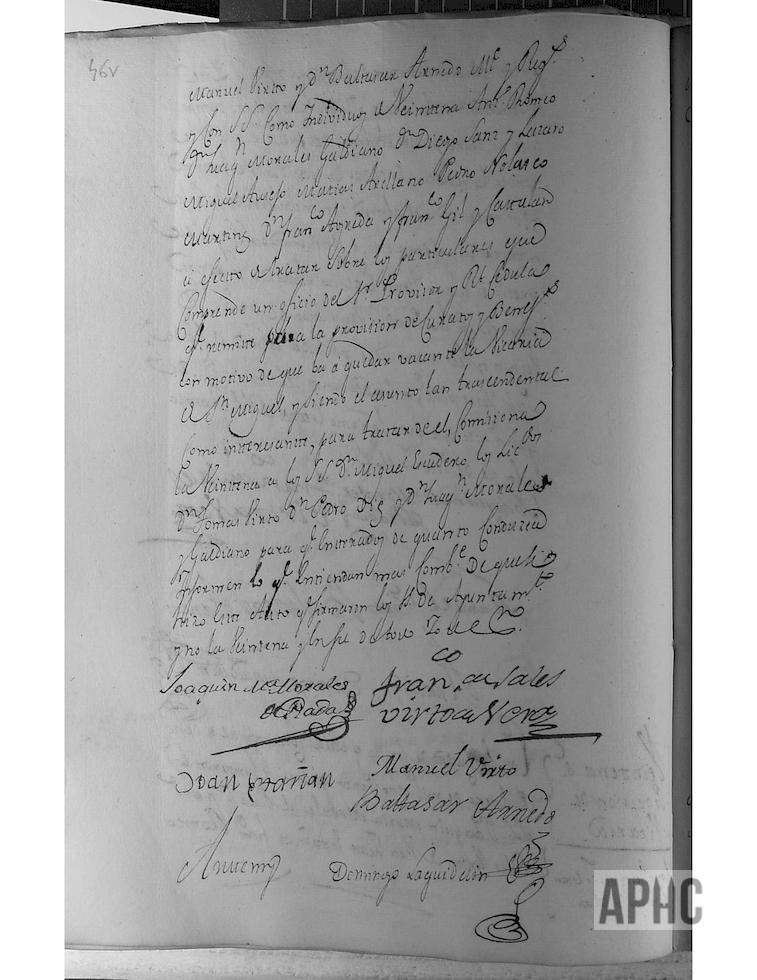 46v
Manuel Virto y Dn Baltasar Arnedo Me y Regs
y Con SS. Como Individuos de Veintena Anto Romeo
Dn Juaqn Morales Galdiano Dn Diego Sanz y Lazaro
Miguel Matias Arellano Pedro Nolasco
Martinez Dn Franco Agreda y Franco Gil y Catalan
a efecto de tratar sobre los particulares que
Comprende un oficio del Sr Provisor y Rl Cedula
qe remite para la provision de Curatos y Benefs
con motivo de que ba á quedar vacante la Vicaria
de Sn Miguel, y siendo el asunto tan trascendental
Como interesante, para tratar de el, Comisiona
la Veintena a los SS Dn Miguel Escudero los Licdos
Dn Tomas Virto Dn Pedro Diz y Dn Juaqn Morales
y Galdiano para qe Enterados de quanto Conduzca
Informen lo qe Entiendan mas Combe De que se
hizo este Auto qe firmaron los SS. de Ayuntamto
y no la Veintena y en fe de todo Yo el
Joaquin Ma Morales
de Rada
Franco de Sales
Virto de Vera
Joan
Manuel Virto
Baltasar Arnedo
Antemi
Domingo Laquidain
APHC